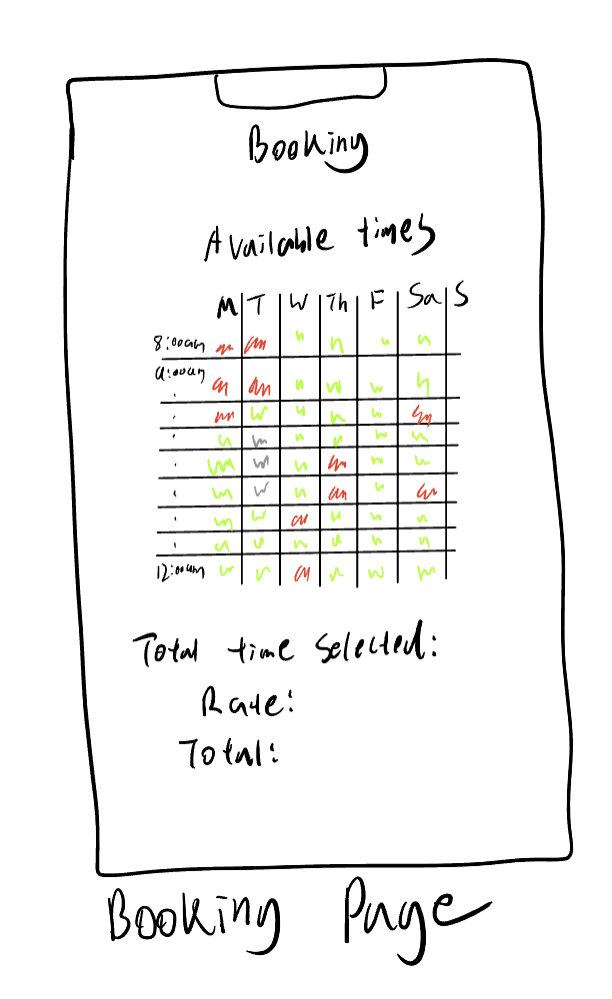 Booking
Available times
M T W Th F Sa S
8:00am
9:00am
12:00am
Total time selected:
Rate:
Total:
Booking Page